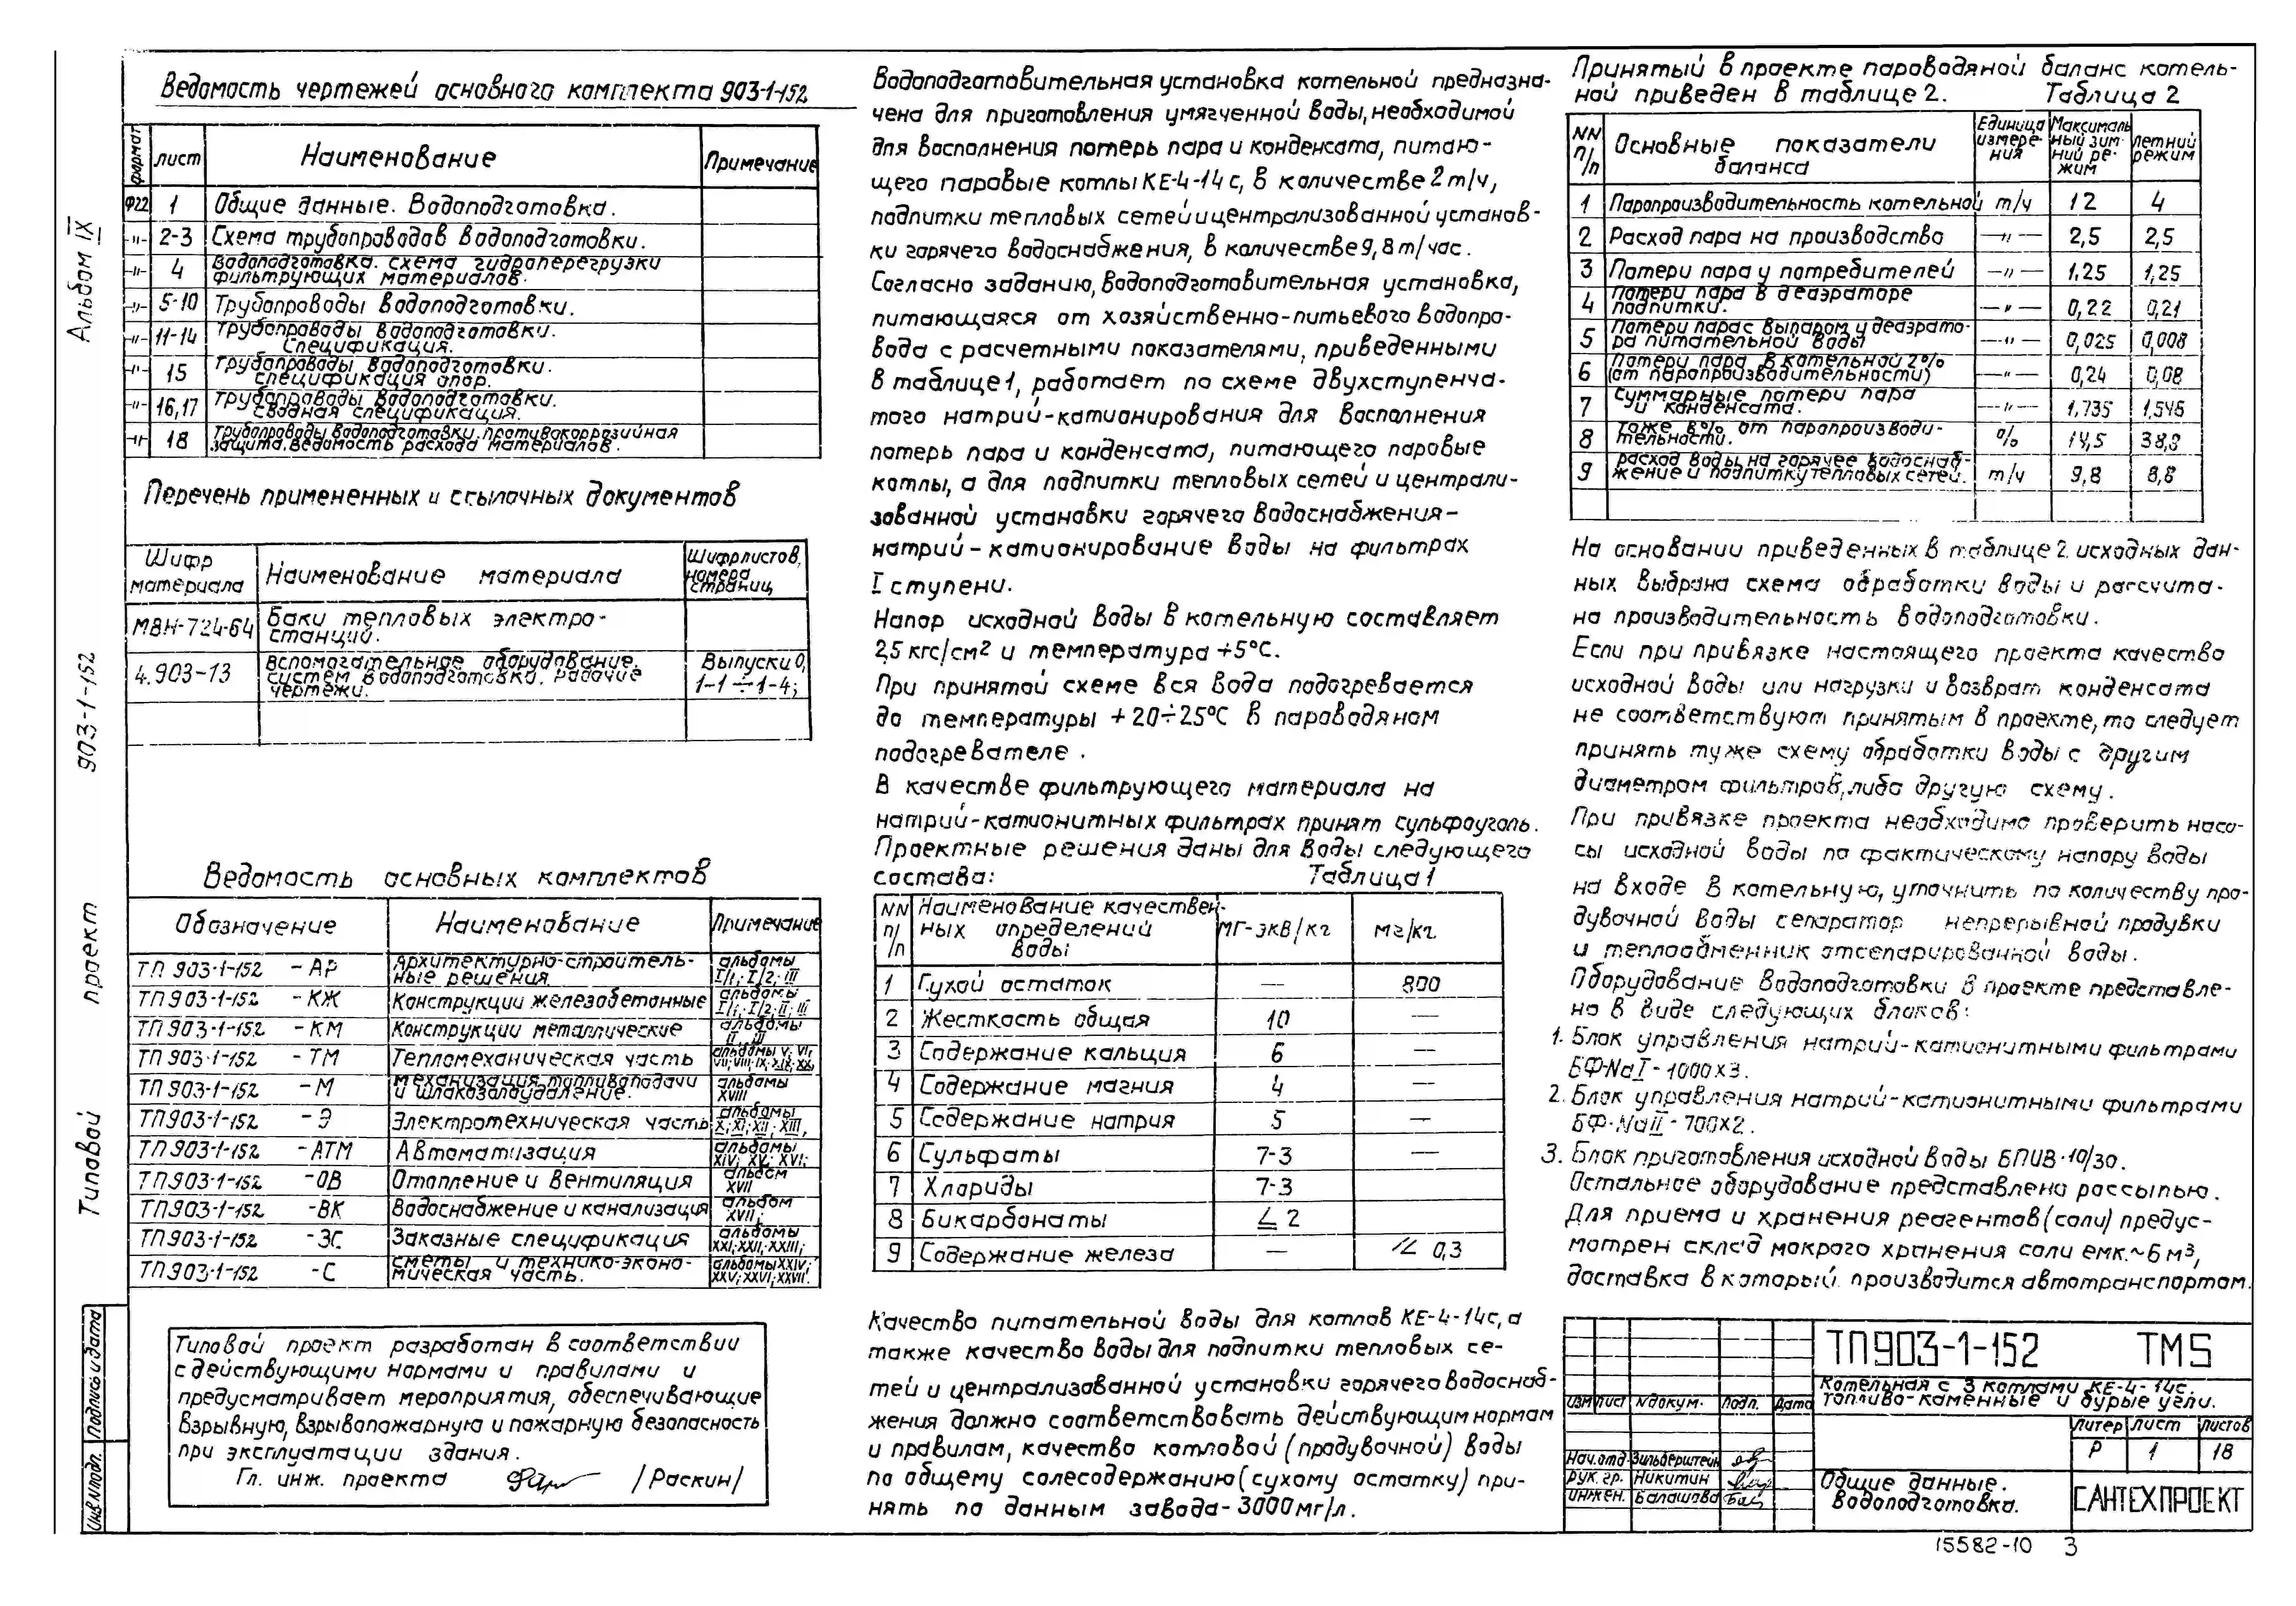 Альбом IX
903-1-152
проект
Типовой
Подпись и дата
Инв.№подл.
Ведомость чертежей основного комплекта 903-1-152
формат лист Наименование Примечание
Ф22 1 Общие данные. Водоподготовка.
-"- 2-3 Схема трубопроводов водоподготовки.
-"- 4 Водоподготовка. схема гидроперегрузки
фильтрующих материалов.
-"- 5-10 Трубопроводы водоподготовки.
-"- 11-14 Трубопроводы водоподготовки.
Спецификация.
-"- 15 Трубопроводы водоподготовки.
спецификация опор.
-"- 16,17 Трубопроводы водоподготовки.
Сводная спецификация.
-"- 18 Трубопроводы водоподготовки. противокоррозийная
защита. ведомость расхода материалов.
Перечень примененных и ссылочных документов
Шифр материала Наименование материала Шифр листов, номера страниц
МВН-724-64 Баки тепловых электро-
станций.
4.903-13 Вспомогательное оборудование. Выпуски 0,
систем водоподготовки. Рабочие 1-1÷1-4;
чертежи.
Ведомость основных комплектов
Обозначение Наименование Примечание
ТП 903-1-152 -АР Архитектурно-строитель- альбомы
ные решения. I/1; I/2; III
ТП 903-1-152 -КЖ Конструкции железобетонные альбомы
I/1; I/2; II; III
ТП 903-1-152 -КМ Конструкции металлические альбомы
II, III
ТП 903-1-152 -ТМ Тепломеханическая часть альбомы V; VI;
VII; VIII; IX; XIX; XX;
ТП 903-1-152 -М Механизация топливоподачи альбомы
и шлакозолоудаление. XVIII
ТП903-1-152 -Э Электротехническая часть альбомы
X; XI; XII; XIII,
ТП 903-1-152 -АТМ Автоматизация альбомы
XIV; XV; XVI;
ТП903-1-152 -ОВ Отопление и вентиляция альбом
XVII
ТП903-1-152 -ВК Водоснабжение и канализация альбом
XVII;
ТП903-1-152 -ЗС Заказные спецификация альбомы
XXI; XXII; XXIII;
ТП903-1-152 -С сметы и технико-эконо- альбомы XXIV;
мическая часть. XXV; XXVI; XXVII.
Типовой проект разработан в соответствии
с действующими нормами и правилами и
предусматривает мероприятия, обеспечивающие
взрывную, взрывопожарную и пожарную безопасность
при эксплуатации здания.
Гл. инж. проекта /Раскин/
Водоподготовительная установка котельной предназна-
чена для приготовления умягченной воды, необходимой
для восполнения потерь пара и конденсата, питаю-
щего паровые котлы КЕ-4-14с, в количестве 2т/ч,
подпитки тепловых сетей и централизованной установ-
ки горячего водоснабжения, в количестве 9,8т/час.
Согласно заданию, водоподготовительная установка,
питающаяся от хозяйственно-питьевого водопро-
вода с расчетными показателями, приведенными
в таблице 1, работает по схеме двухступенча-
того натрий-катионирования для восполнения
потерь пара и конденсата, питающего паровые
котлы, а для подпитки тепловых сетей и централи-
зованной установки горячего водоснабжения-
натрий-катионирование воды на фильтрах
I ступени.
Напор исходной воды в котельную составляет
2,5 кгс/см² и температура +5°С.
При принятой схеме вся вода подогревается
до температуры +20÷25°С в пароводяном
подогревателе.
В качестве фильтрующего материала на
натрий-катионитных фильтрах принят сульфоуголь.
Проектные решения даны для воды следующего
состава: Таблица 1
NN п/п Наименование качествен- мг-экв/кг мг/кг.
ных определений
воды
1 Сухой остаток — 800
2 Жесткость общая 10 —
3 Содержание кальция 6 —
4 Содержание магния 4 —
5 Содержание натрия 5 —
6 Сульфаты 7-3 —
7 Хлориды 7-3
8 Бикарбонаты ∠ 2
9 Содержание железа — ∠ 0,3
Качество питательной воды для котлов КЕ-4-14с, а
также качество воды для подпитки тепловых се-
тей и централизованной установки горячего водоснаб-
жения должно соответствовать действующим нормам
и правилам, качество котловой (продувочной) воды
по общему солесодержанию (сухому остатку) при-
нять по данным завода-3000мг/л.
Принятый в проекте пароводяной баланс котель-
ной приведен в таблице 2. Таблица 2
NN п/п Основные показатели баланса Единица измере-ния Максималь-ный зим-ний ре-жим летний режим
1 Паропроизводительность котельной т/ч 12 4
2 Расход пара на производство —"— 2,5 2,5
3 Потери пара у потребителей —"— 1,25 1,25
4 Потери пара в деаэраторе
подпитки. —"— 0,22 0,21
5 Потери пара с выпаром у деаэрато-
ра питательной воды —"— 0,025 0,008
6 Потери пара в котельной 2%
(от паропроизводительности) —"— 0,24 0,08
7 Суммарные потери пара
и конденсата. —"— 1,735 1,545
8 Тоже в % от паропроизводи-
тельности. % 14,5 38,8
9 расход воды на горячее водоснаб-
жение и подпитку тепловых сетей. т/ч 9,8 8,8
На основании приведенных в таблице 2 исходных дан-
ных выбрана схема обработки воды и рассчита-
на производительность водоподготовки.
Если при привязке настоящего проекта качество
исходной воды или нагрузки и возврат конденсата
не соответствуют принятым в проекте, то следует
принять туже схему обработки воды с другим
диаметром фильтров, либо другую схему.
При привязке проекта необходимо проверить насо-
сы исходной воды по фактическому напору воды
на входе в котельную, уточнить по количеству про-
дувочной воды сепаратор непрерывной продувки
и теплообменник отсепарированной воды.
Оборудование водоподготовки в проекте представле-
но в виде следующих блоков:
1. Блок управления натрий-катионитными фильтрами
БФ-NaI-1000х3.
2. Блок управления натрий-катионитными фильтрами
БФ-NaII-700х2.
3. Блок приготовления исходной воды БПИВ-10/30.
Остальное оборудование представлено россыпью.
Для приема и хранения реагентов (соли) предус-
мотрен склад мокрого хранения соли емк.~6м³,
доставка в который производится автотранспортом.
ТП903-1-152 ТМ5
Котельная с 3 котлами КЕ-4-14с.
Топливо-каменные и бурые угли.
Изм Лист №докум. Подп. Дата
Литер Лист Листов
Р 1 18
Нач.отд. Зильберштейн
Рук.гр. Никитин
инжен. Балашова
Общие данные.
Водоподготовка.
САНТЕХПРОЕКТ
15582-10 3